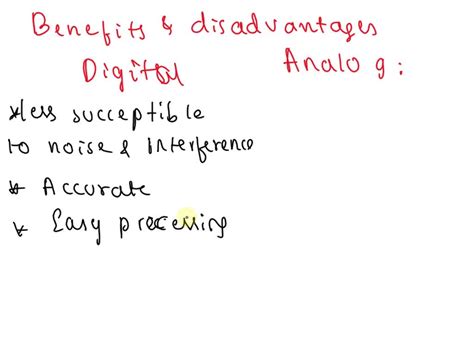 Benefits & disadvantages
Digital Analog :
*less succeptible
to noise & interference
* Accurate
* Easy processing